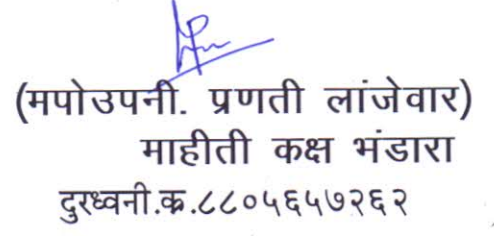 (मपोउपनी. प्रणती लांजेवार)
माहीती कक्ष भंडारा
दुरध्वनी.क्र.८८०५६५७२६२